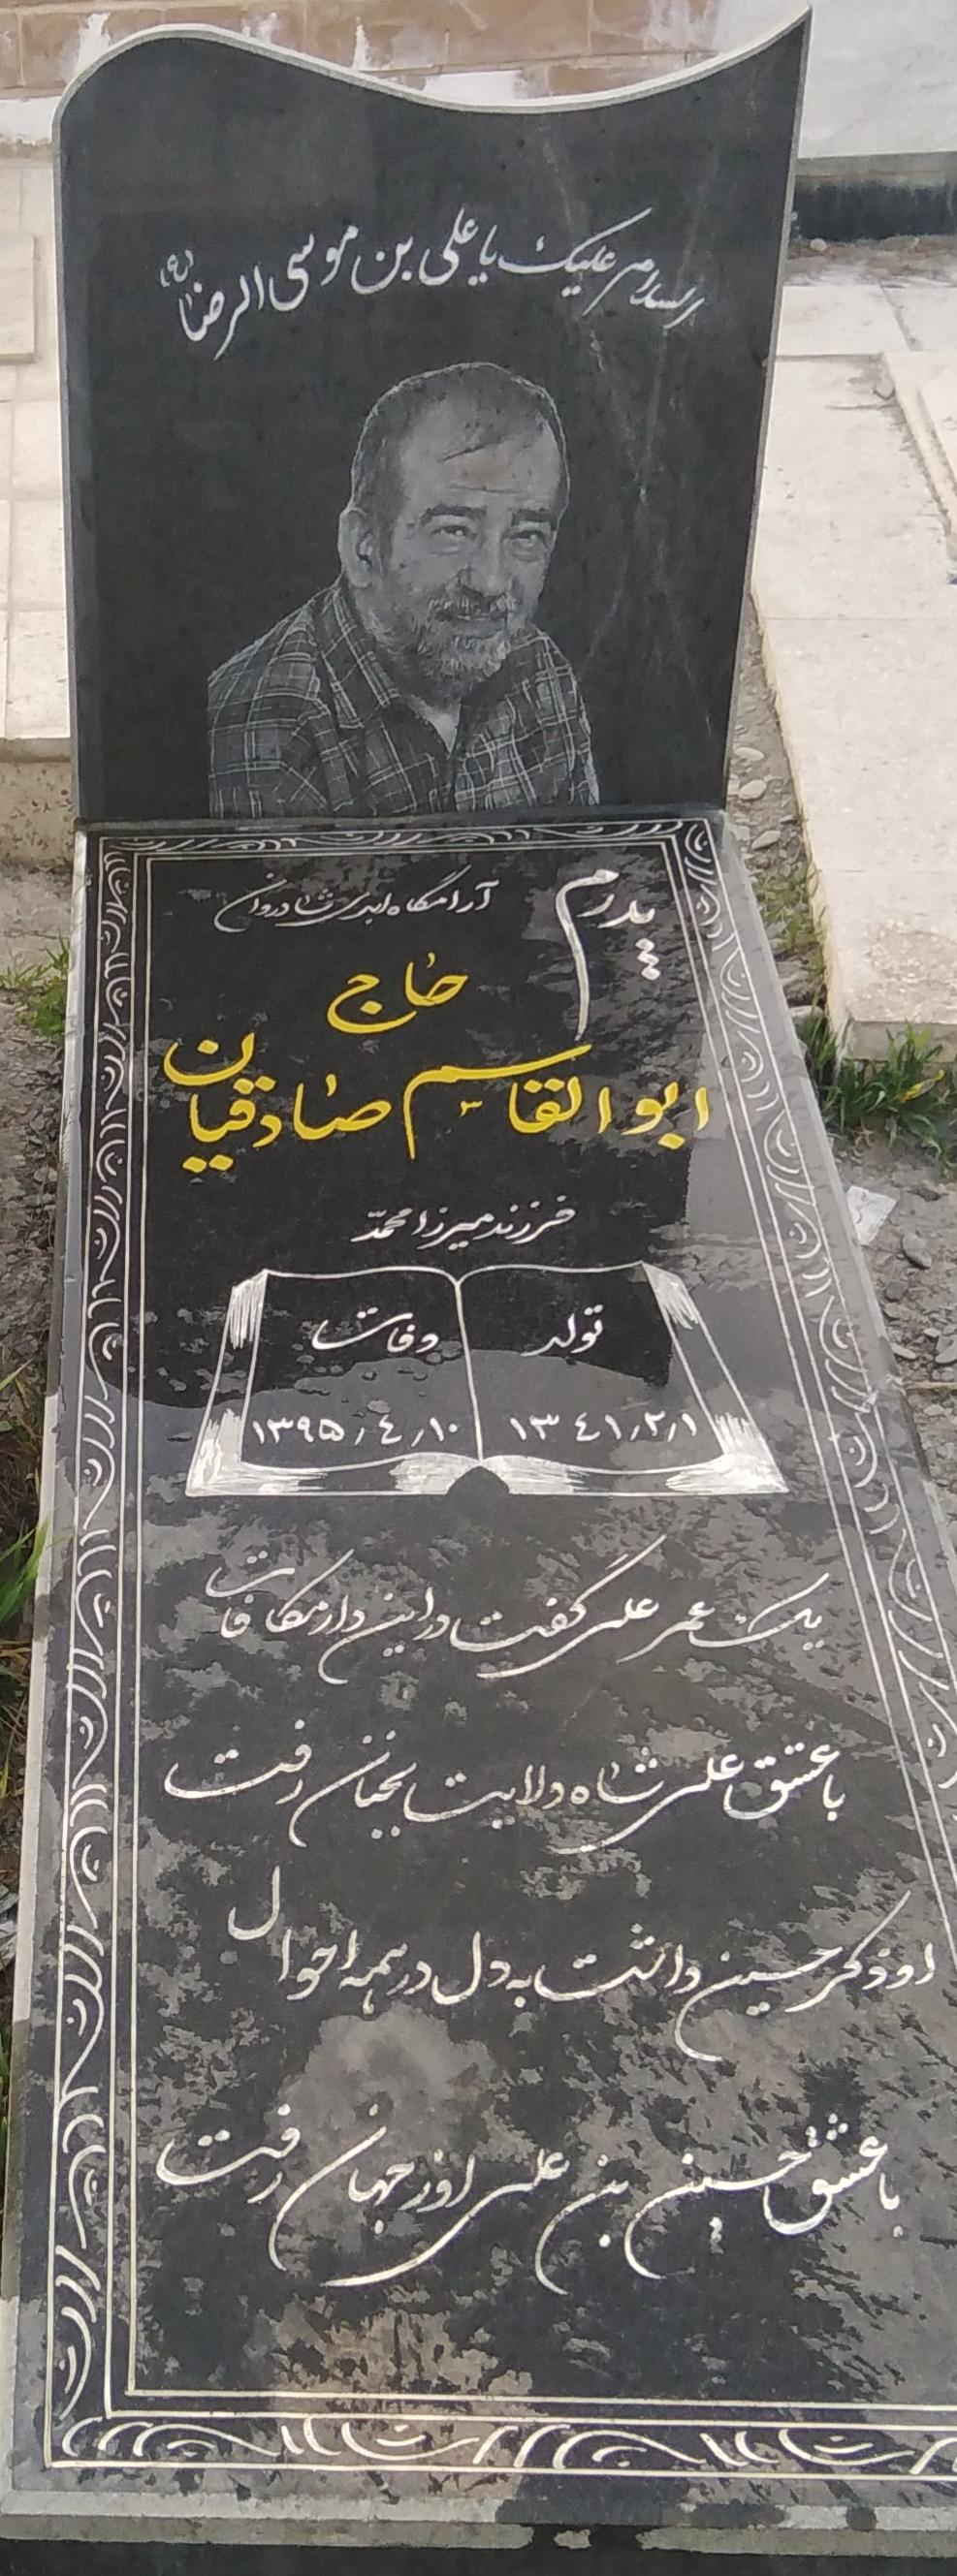 السلام علیک یا علی بن موسی الرضا (ع)
پدرم
آرامگاه ابدی شادروان
حاج
ابوالقاسم صادقیان
فرزند میرزا محمد
تولد
۱۳۴۱/۲/۱
وفات
۱۳۹۵/۴/۱۰
یک عمر علی گفت در این دار مکافات
با عشق علی شاه ولایت بجنان رفت
او ذکر حسین داشت به دل در همه احوال
با عشق حسین بن علی او ز جهان رفت